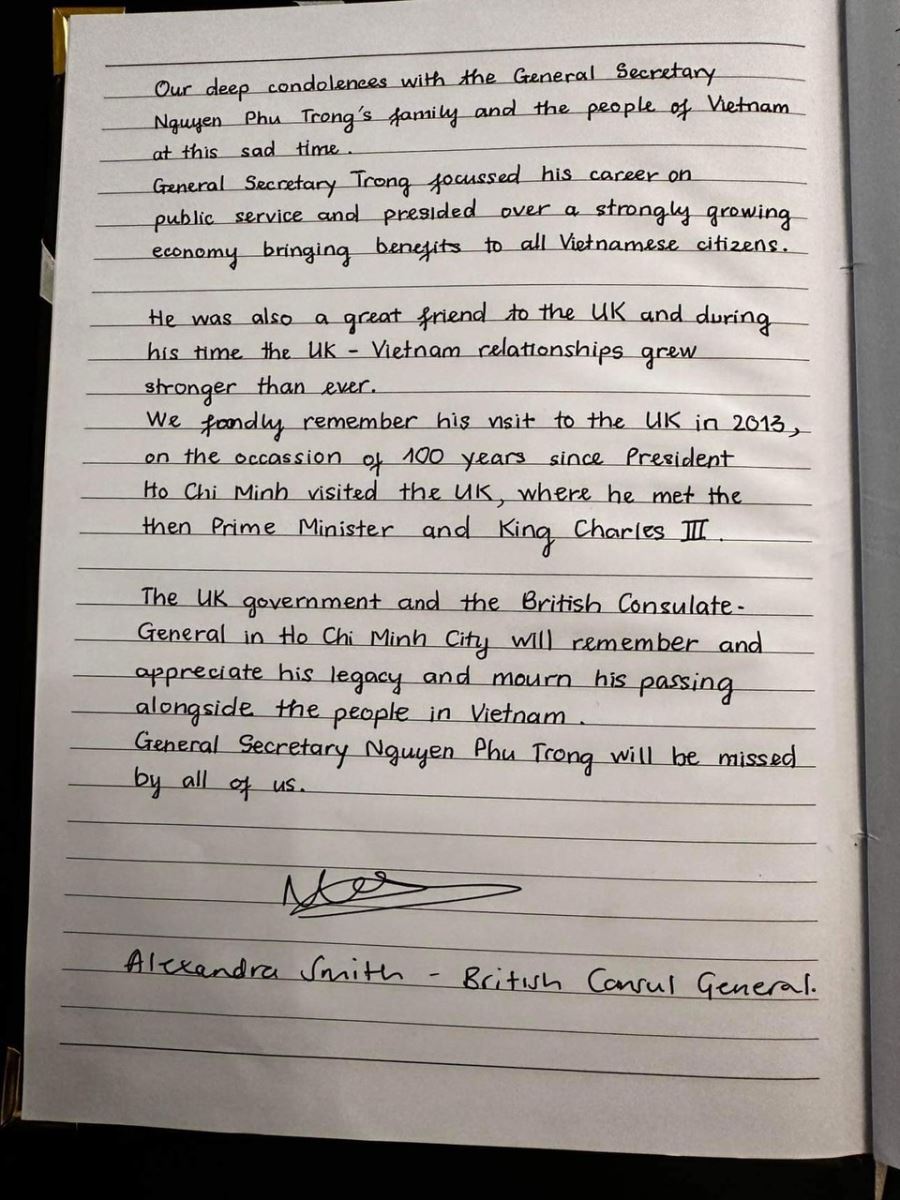 Our deep condolences with the General Secretary
Nguyen Phu Trong's family and the people of Vietnam
at this sad time.
General Secretary Trong focussed his career on
public service and presided over a strongly growing
economy bringing benefits to all Vietnamese citizens.
He was also a great friend to the UK and during
his time the UK - Vietnam relationships grew
stronger than ever.
We fondly remember his visit to the UK in 2013,
on the occassion of 100 years since President
Ho Chi Minh visited the UK, where he met the
then Prime Minister and King Charles III.
The UK government and the British Consulate-
General in Ho Chi Minh City will remember and
appreciate his legacy and mourn his passing
alongside the people in Vietnam.
General Secretary Nguyen Phu Trong will be missed
by all of us.
Alexandra Smith - British Consul General.